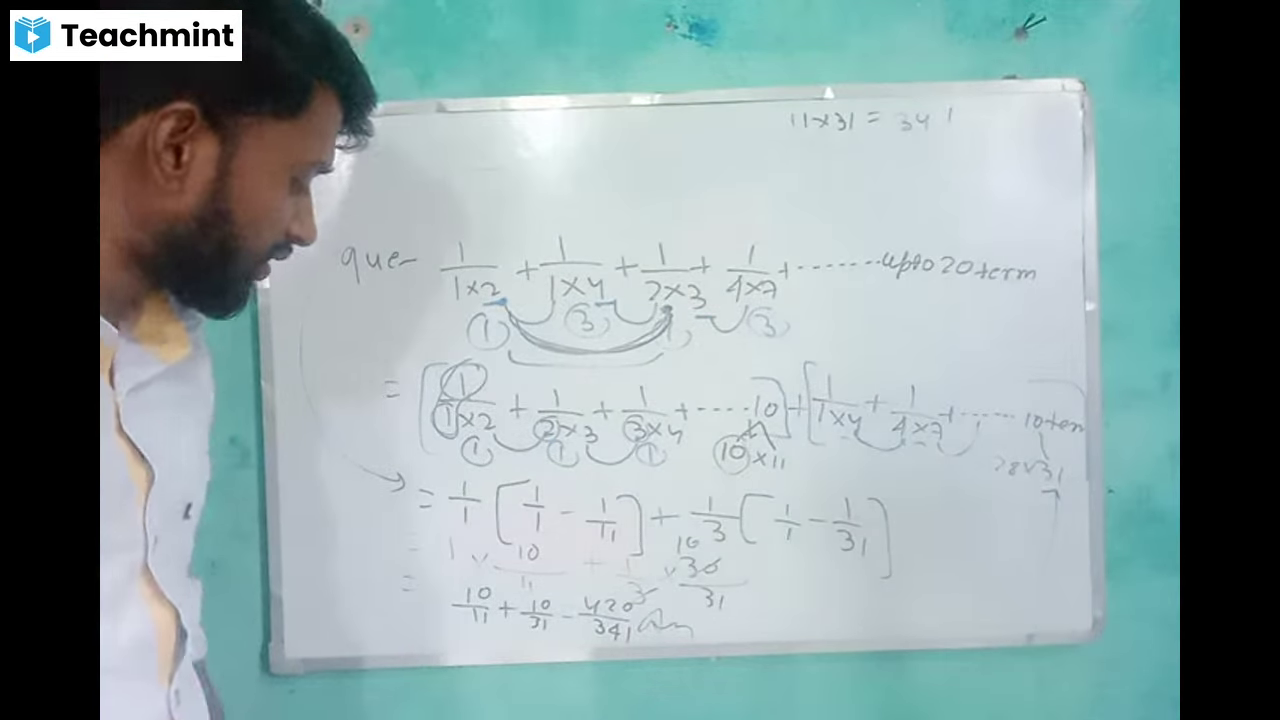 Teachmint
11×31 = 341
que- 1/1×2 + 1/1×4 + 1/2×3 + 1/4×7 + ........ upto 20 term
① ③ 1 ③
= [1/①×2 + 1/②×3 + 1/③×4 + ..... 10] + [1/1×4 + 1/4×7 + ...... 10 ter
① ① ① ⑩×11 28×31
= 1/1 [1/1 - 1/11] + 1/3 [1/1 - 1/31]
= 1 × 10/11 + 1/3 × 30/31 10
10/11 + 10/31 - 420/341 Ans